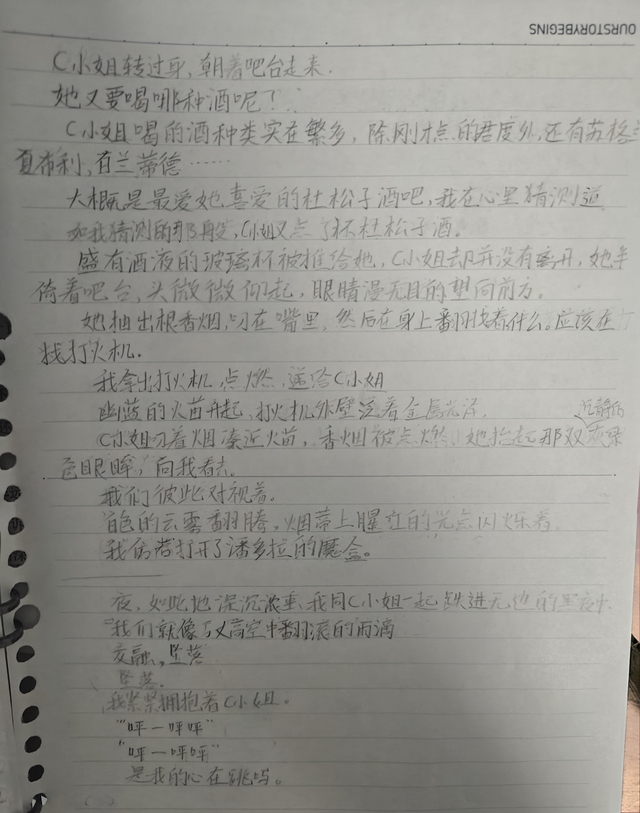 OURSTORYBEGINS
C小姐转过身,朝着吧台走来.
她又要喝哪种酒呢?
C小姐喝的酒种类实在繁多,除刚才点的君度外,还有苏格兰
直布利,百兰蒂德……
大概是最爱她喜爱的杜松子酒吧,我在心里猜测道
如我猜测的那般,C小姐又点了杯杜松子酒。
盛有酒液的玻璃杯被推给她,C小姐却并没有离开,她半
倚着吧台,头微微仰起,眼睛漫无目的望向前方。
她抽出根香烟,叼在嘴里,然后在身上翻找着什么。应该在
找打火机.
我拿出打火机,点燃,递给C小姐
幽蓝的火苗升起,打火机外壁泛着金属光泽.
沉静的
C小姐叼着烟凑近火苗,香烟被点燃,她抬起那双灰绿
色眼眸,向我看去.
我们彼此对视着。
白色的云雾翻腾,烟蒂上猩红的光点闪烁着,
我仿若打开了潘多拉的魔盒。
夜,如此地深沉浓重,我同C小姐一起跌进无边的黑夜中
我们就像高空中翻滚的雨滴
交融,坠落
坠落.
我紧紧拥抱着C小姐。
"呯—呯呯"
"呯—呯呯"
是我的心在跳吗。